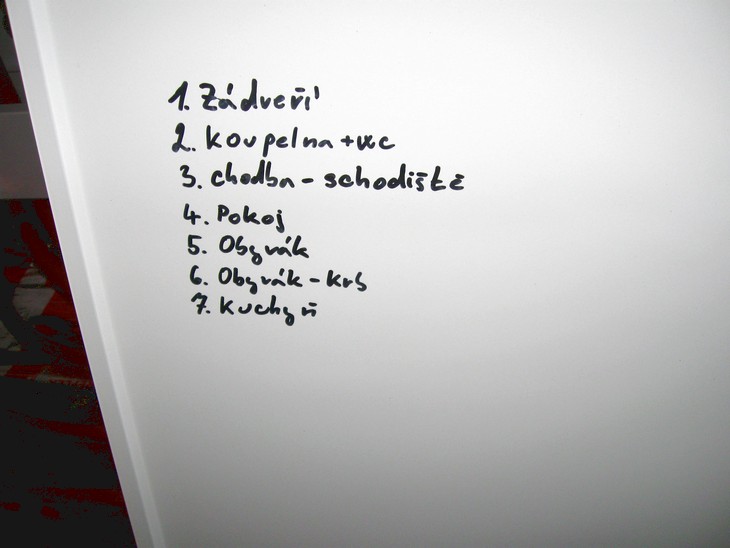 1. Zádveří
2. Koupelna + wc
3. chodba - schodiště
4. Pokoj
5. Obyvák
6. Obyvák - Krb
7. Kuchyň